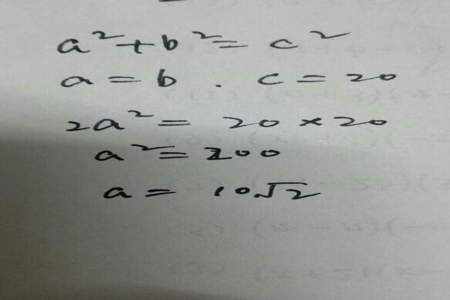 a² + b² = c²
a = b . c = 20
2a² = 20 × 20
a² = 200
a = 10√2